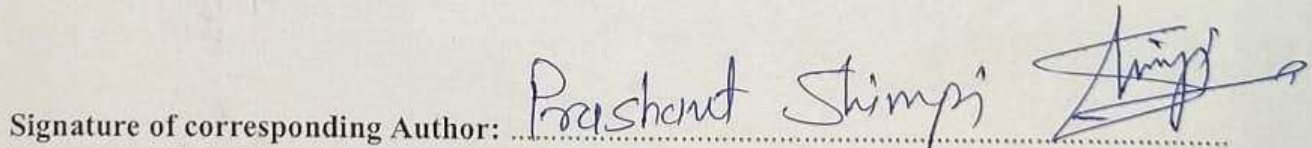 Signature of corresponding Author: Prashant Shimpi Shimpi